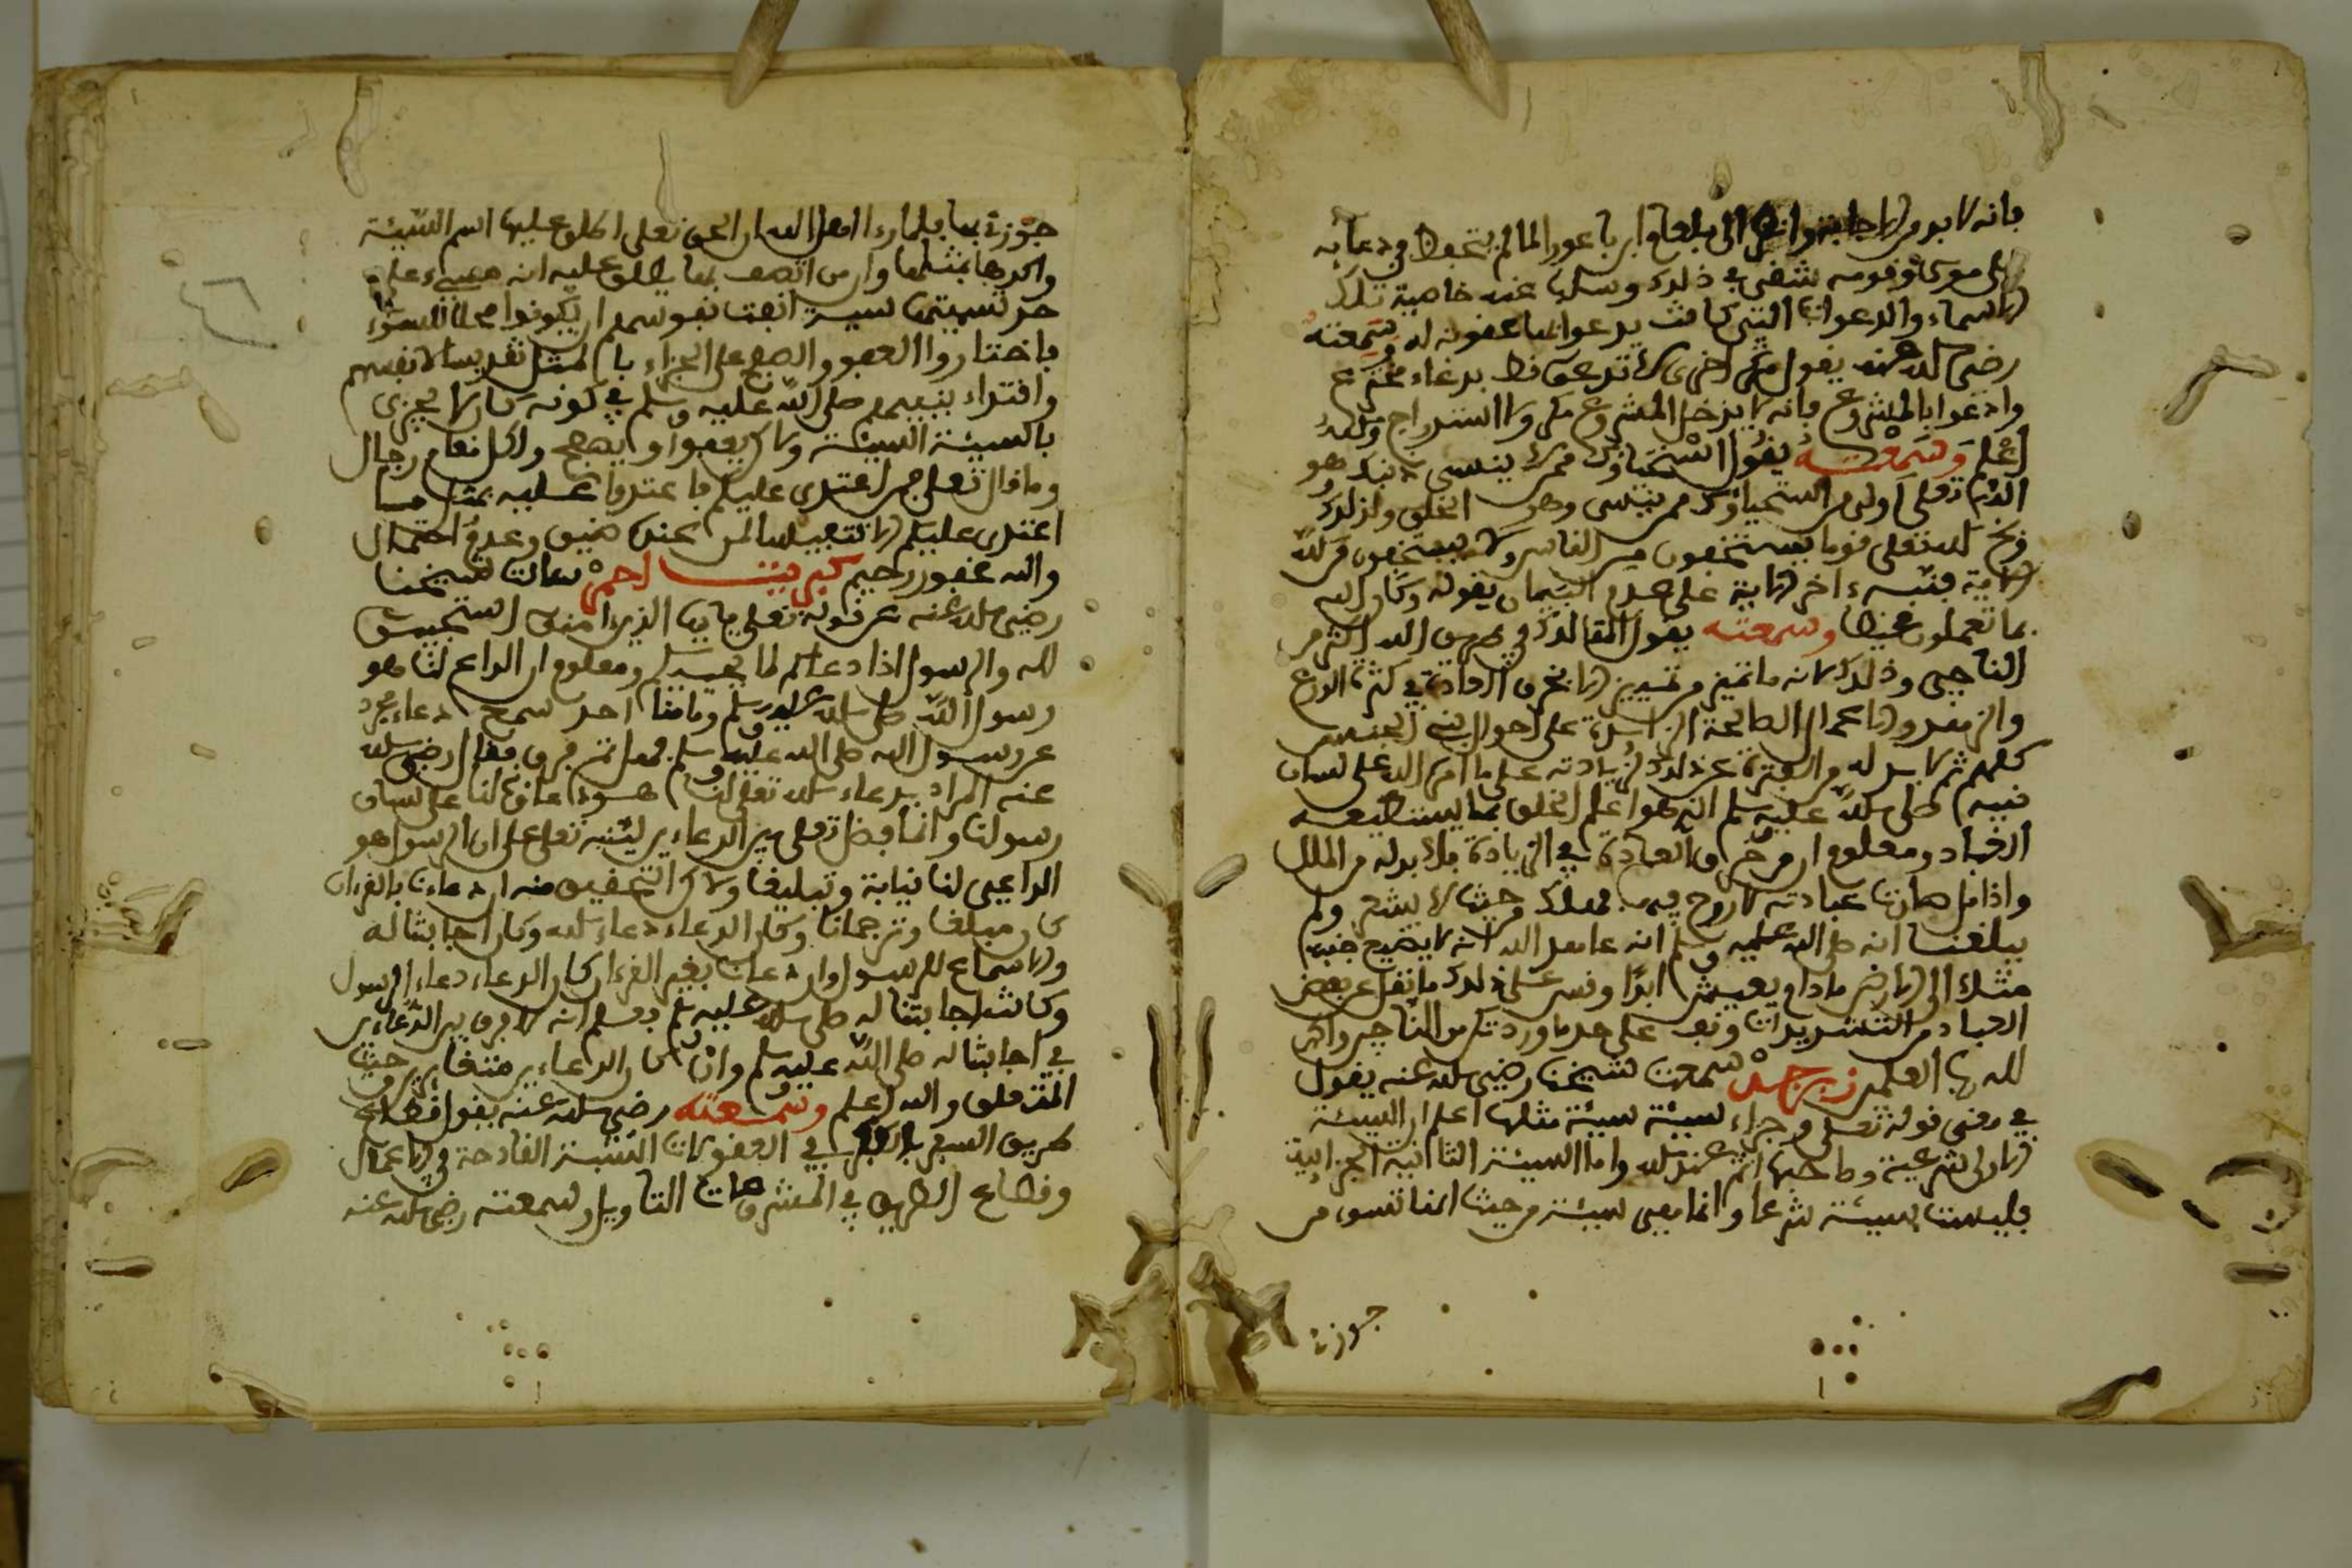 فانه لا بد من الاجابة وانظر الى بلعام ابن باعورا لما لم يتحفظ في دعايه
على موسى وقومه شقي في ذلك وسلب عنه خاصية تلك
الاسماء والدعوات التي كانت يدعوا بها عقوبة له وسمعته
رضي الله عنه يقول مرة اخرى لا تدعو قط بدعاء مخترع
وادعوا بالمشروع فانه لا يدخل المشروع مكر ولا استدراج والله
اعلم وسمعته يقول استحياؤك ممن لا ينسى ذنبك وهو
الله تعلى اولى من استحياؤك ممن ينسى وهو الخلق ولذلك
وبخ الله تعلى قوما يستخفون من الناس ولا يستخفون من الله
الاية فنبه ءاخر الاية على هذا البيان بقوله وكان الله
بما تعملون محيطا وسمعته يقول الهالك في طريق الله اكثر من
الناجي وذلك لانه ما تميز من تميز الا بخرق العادة في كثرة الورع
والزهد والاعمال الصالحة الزايدة على احوال بني الجنس
كلهم ثم لا بد له من الفترة عن ذلك لزيادته على ما امره الله على لسان
نبيه صلى الله عليه وسلم الذي هو اعلم الخلق بما يستطيعه
العباد ومعلوم ان من خرق العادة في الزيادة فلا بد له من الملل
واذا مل صارت عبادته لا روح فيها فهلك من حيث لا يشعر ولم
يبلغنا انه صلى الله عليه وسلم انه عاهد الله انه لا يضع جنبه
مثلا الى الارض ما دام يعيش ابدا وقس على ذلك ما نقل عن بعض
العباد من التشديدات وقف على حد ما وردتك من الناجين والحمد
لله رب العلمين زبرجد سمعت شيخنا رضي الله عنه يقول
في معنى قوله تعلى وجزاء سيئة سيئة مثلها اعلم ان السيئة
الاولى شرعية وصاحبها اثم عند الله واما السيئة الثانية الجزائية
فليست بسيئة شرعا وانما هي سيئة من حيث انها تسوء من
جوزي
جوزي بها فلما راا اهل الله ان الحق تعلى اطلق عليها اسم السيئة
واكدها بمثلها وان من اتصف بها يطلق عليه انه مسيء على
حد تسميتها سيئة انفت نفوسهم ان يكونوا محلا للسوء
فاختاروا العفو والصفح على الجزاء بالمثل تقديسا لانفسهم
واقتداء بنبيهم صلى الله عليه وسلم في كونه كان لا يجزي
بالسيئة السيئة ولكن يعفوا ويصفح ولكل مقام رجال
وما قال تعلى فمن اعتدى عليكم فاعتدوا عليه بمثل ما
اعتدى عليكم الا تنفيسا لمن عنده ضيق وعدم احتمال
والله غفور رحيم كبريت احمر سالت شيخنا
رضي الله عنه عن قوله تعلى يايها الذين امنوا استجيبوا
لله والرسول اذا دعاكم لما يحييكم ومعلوم ان الداعي لنا هو
رسول الله صلى الله عليه وسلم وما منا احد سمع دعاء مجردا
عن رسول الله صلى الله عليه وسلم فهل ثم فرق فقال رضي الله
عنه المراد بدعاء الله تعلى لنا هو دعاؤه لنا على لسان
رسولنا وانما فصل تعلى بين الدعاءين لينبه تعلى على ان الرسول هو
الداعي لنا نيابة وتبليغا ولاكن التحقيق منه ان دعانا بالقرءان
كان مبلغا وترجمانا وكان الدعاء دعاء الله وكان اجابتنا له
والاسماع للرسول وان دعانا بغير القرءان كان الدعاء دعاء الرسول
وكانت اجابتنا له صلى الله عليه وسلم فعلم انه لا فرق بين الدعاءين
في اجابتنا له صلى الله عليه وسلم وان كان الدعاءين متغايرين من حيث
المتعلق والله اعلم وسمعته رضي الله عنه يقول قطاع
طريق السفر في المعقولات الشبه القادحة في الاعمال
وقطاع الطريق في المشروعات التاويل وسمعته رضي الله عنه